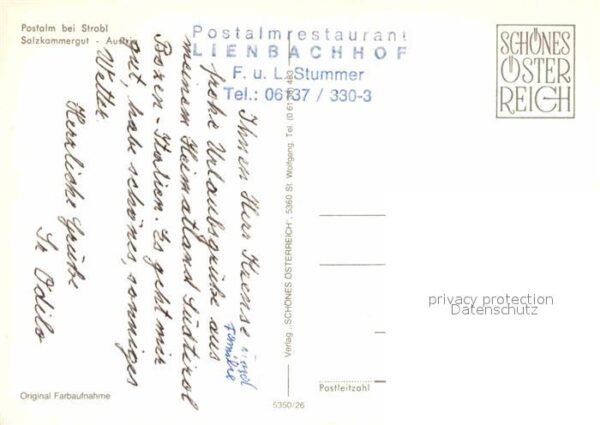 Postalm bei Strobl
Salzkammergut - Austria
Postalmrestaurant
LIENBACHHOF
F. u. L. Stummer
Tel.: 06137 / 330-3
SCHÖNES
ÖSTER
REICH
Ihnen Herr Krense
und
Familie
frohe Urlaubsgrüße aus
meinem Heimatland Südtirol
Bozen - Italien. Es geht mir
gut, habe schönes, sonniges
Wetter.
Herzliche Grüße
Sr. Odilo
Verlag „SCHÖNES ÖSTERREICH", 5360 St. Wolfgang, Tel. (0 61 38)
privacy protection
Datenschutz
Postleitzahl
Original Farbaufnahme
5350/26